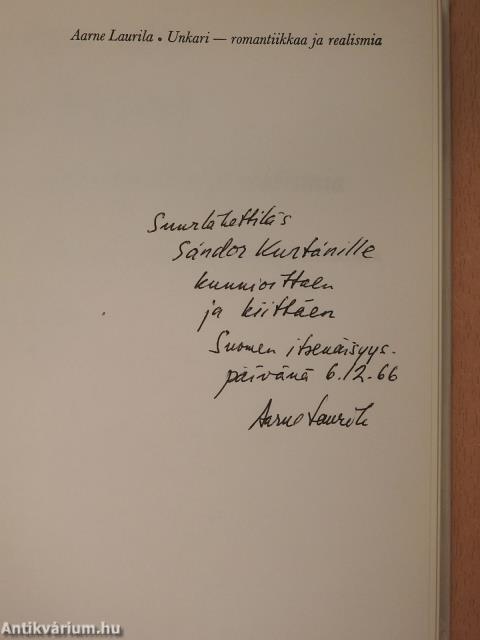 Aarne Laurila • Unkari — romantiikkaa ja realismia
Suurlähettiläs
Sándor Kurtánille
kunnioittaen
ja kiittäen
Suomen itsenäisyys-
päivänä 6.12.66
Aarne Laurila
Antikvárium.hu